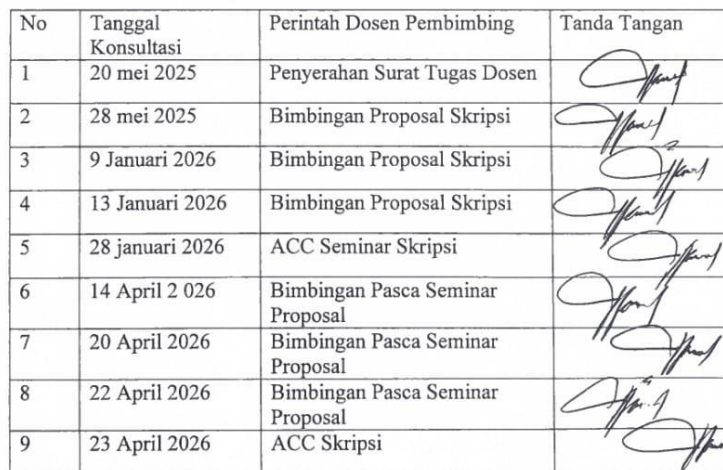 No Tanggal Konsultasi Perintah Dosen Pembimbing Tanda Tangan
1 20 mei 2025 Penyerahan Surat Tugas Dosen
2 28 mei 2025 Bimbingan Proposal Skripsi
3 9 Januari 2026 Bimbingan Proposal Skripsi
4 13 Januari 2026 Bimbingan Proposal Skripsi
5 28 januari 2026 ACC Seminar Skripsi
6 14 April 2 026 Bimbingan Pasca Seminar
Proposal
7 20 April 2026 Bimbingan Pasca Seminar
Proposal
8 22 April 2026 Bimbingan Pasca Seminar
Proposal
9 23 April 2026 ACC Skripsi